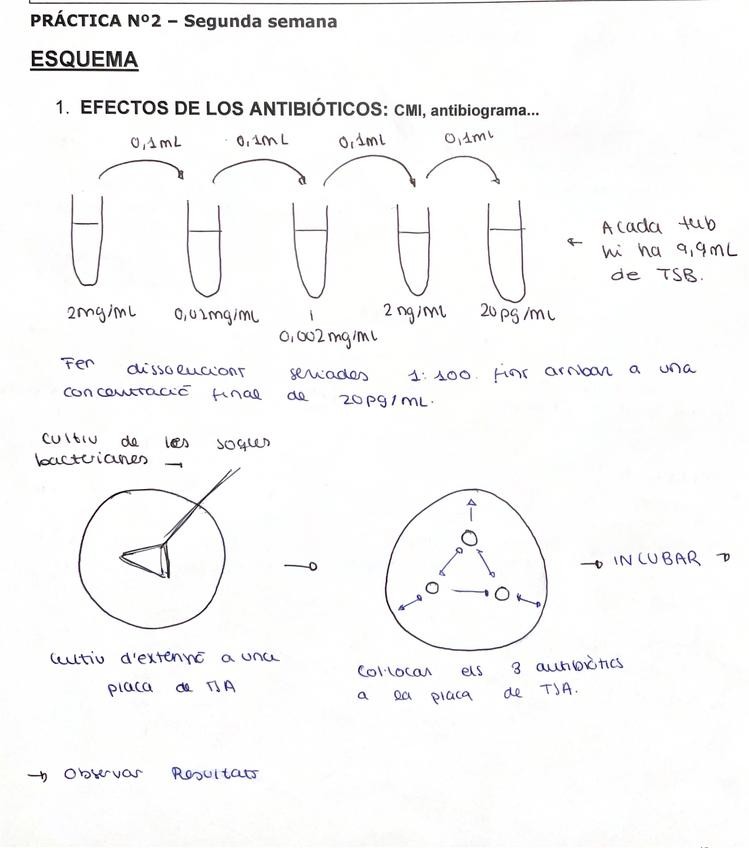 PRÁCTICA Nº2 – Segunda semana
ESQUEMA
1. EFECTOS DE LOS ANTIBIÓTICOS: CMI, antibiograma...
0,1mL 0,1mL 0,1mL 0,1mL
A cada tub
hi ha 9,9mL
de TSB.
2mg/mL 0,02mg/mL 0,002mg/mL 2ng/mL 20pg/mL
Fer dissolucions seriades 1:100. fins arribar a una
concentració final de 20pg/mL.
Cultiu de les soques
bacterianes →
→ INCUBAR →
Cultiu d'extensió a una
placa de TSA
Col·locar els 3 antibiòtics
a la placa de TSA.
→ Observar Resultats